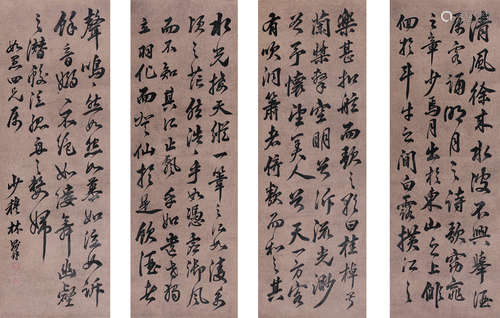 清風徐來水波不興舉酒
屬客誦明月之詩歌窈窕
之章少焉月出於東山之上徘
徊於斗牛之間白露橫江
樂甚扣舷而歌之歌曰桂棹兮
蘭槳擊空明兮泝流光渺
渺兮予懷望美人兮天一方客
有吹洞簫者倚歌而和之其
水光接天縱一葦之所如凌萬
頃之茫然浩浩乎如憑虛御風
而不知其所止飄乎如遺世獨
立羽化而登仙於是飲酒
聲嗚嗚然如怨如慕如泣如訴
餘音嫋嫋不絕如縷舞幽壑
之潛蛟泣孤舟之嫠婦
四兄屬
少穆林則徐